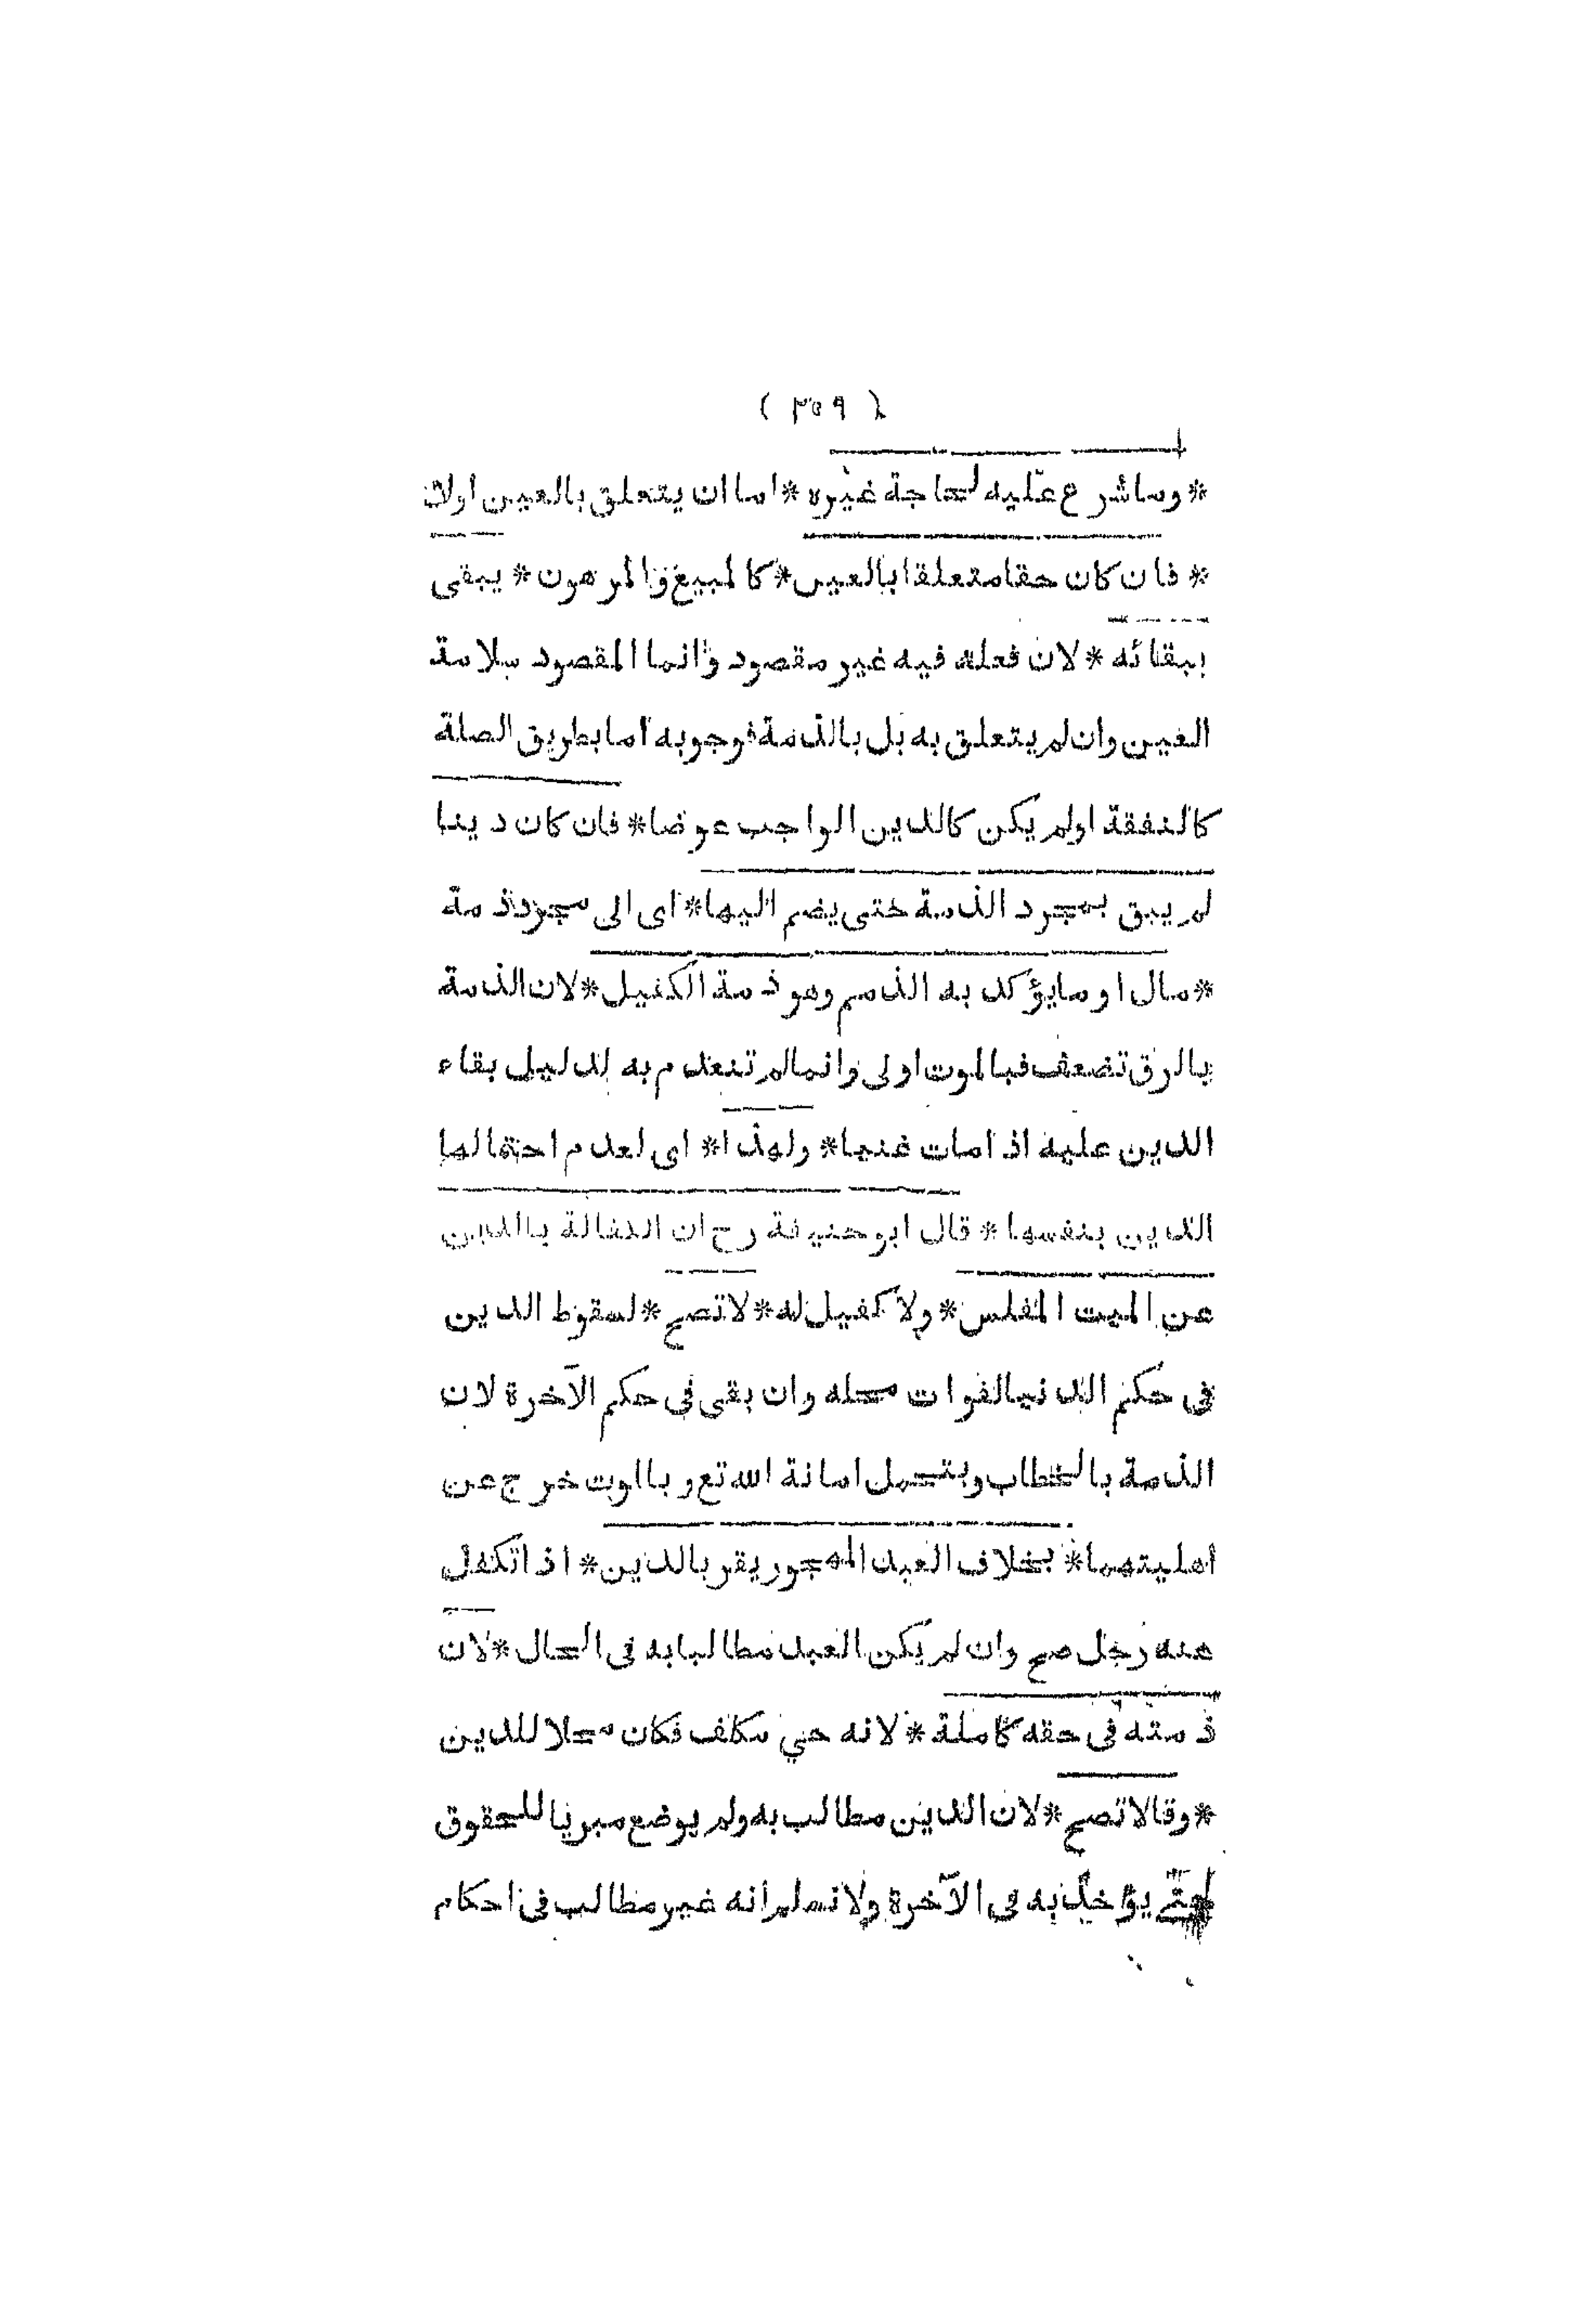 ( ٣٥٩ )
* وما شرع عليه لحاجة غيره * اما ان يتعلق بالعين اولا
* فان كان حقا متعلقا بالعين * كالمبيع والمرهون * يبقى
ببقائه * لان فعله فيه غير مقصود وانما المقصود سلامة
العين وان لم يتعلق به بل بالذمة فوجوبه اما بطريق الصلة
كالنفقة اولم يكن كالدين الواجب عوضا * فان كان دينا
لم يبق بمجرد الذمة حتى يضم اليها * اى الى مجرد ذمة
* مال او ما يؤكد به الذمم وهو ذمة الكفيل * لان الذمة
بالرق تضعف فبالموت اولى وانما لم تنعدم به لدليل بقاء
الدين عليه اذا مات غنيا * ولهذا * اى لعدم احتمالها
الدين بنفسها * قال ابو حنيفة رح ان الكفالة بالدين
عن الميت المفلس * ولا كفيل له * لا تصح * لسقوط الدين
فى حكم الدنيا لفوات محله وان بقى فى حكم الآخرة لان
الذمة بالخطاب وبتحمل امانة الله تع وبالموت خرج عن
اهليتهما * بخلاف العبد المحجور يقر بالدين * اذا تكفل
عنه رجل صح وان لم يكن العبد مطالبا به فى الحال * لان
ذمته فى حقه كاملة * لانه حي مكلف فكان محلا للدين
* وقالا تصح * لان الدين مطالب به ولم يوضع مبريا للحقوق
حتى يؤاخذ به فى الآخرة ولا نسلم انه غير مطالب فى احكام